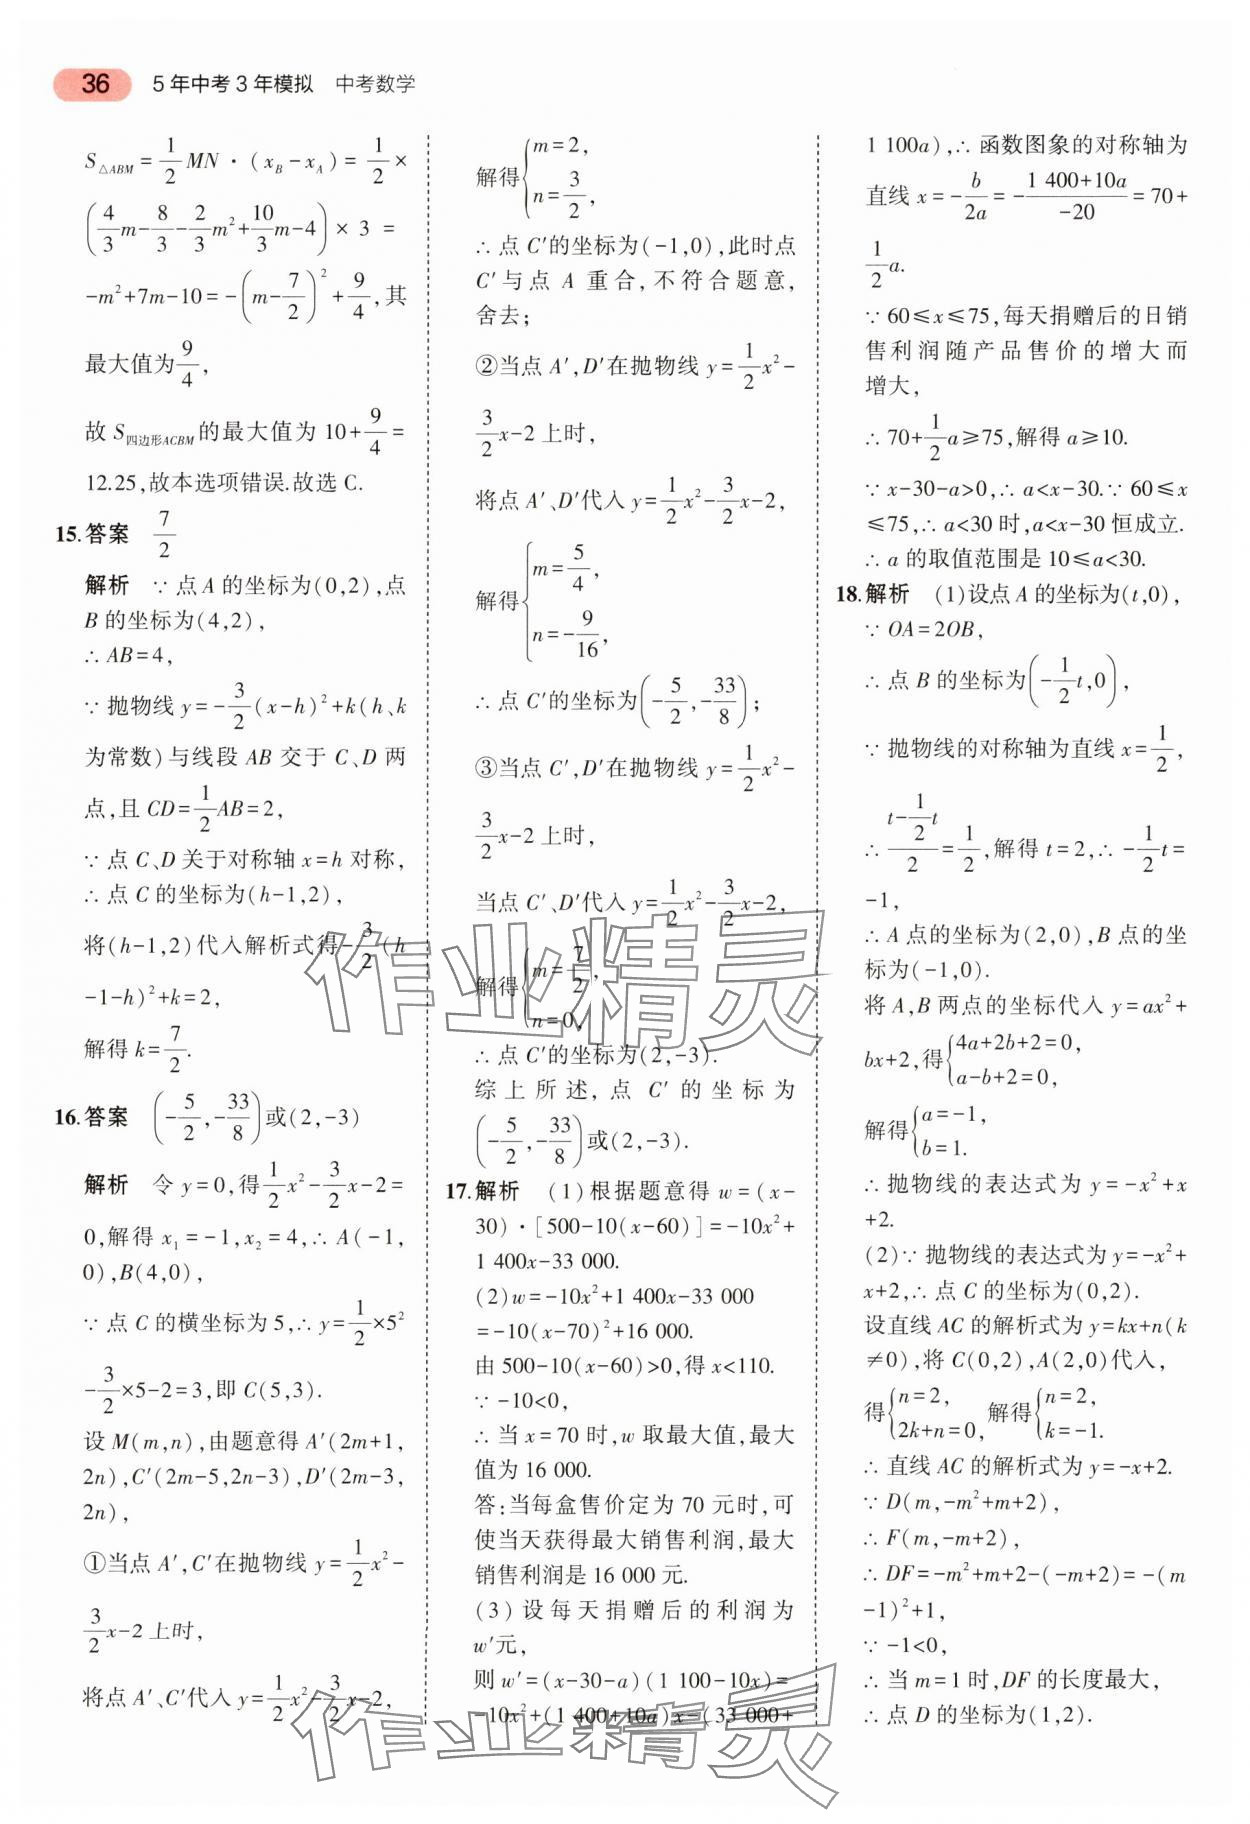 36 5年中考3年模拟 中考数学
S△ABM=1/2MN·(x_B-x_A)=1/2×
(4/3m-8/3-2/3m²+10/3m-4)×3=
-m²+7m-10=-(m-7/2)²+9/4,其
最大值为9/4,
故S四边形ACBM的最大值为10+9/4=
12.25,故本选项错误.故选C.
15.答案 7/2
解析 ∵点A的坐标为(0,2),点
B的坐标为(4,2),
∴AB=4,
∵抛物线y=-3/2(x-h)²+k(h、k
为常数)与线段AB交于C、D两
点,且CD=1/2AB=2,
∵点C、D关于对称轴x=h对称,
∴点C的坐标为(h-1,2),
将(h-1,2)代入解析式得-3/2(h
-1-h)²+k=2,
解得k=7/2.
16.答案 (-5/2,-33/8)或(2,-3)
解析 令y=0,得1/2x²-3/2x-2=
0,解得x₁=-1,x₂=4,∴A(-1,
0),B(4,0),
∵点C的横坐标为5,∴y=1/2×5²
-3/2×5-2=3,即C(5,3).
设M(m,n),由题意得A′(2m+1,
2n),C′(2m-5,2n-3),D′(2m-3,
2n),
①当点A′,C′在抛物线y=1/2x²-
3/2x-2上时,
将点A′、C′代入y=1/2x²-3/2x-2,
解得{m=2,
n=3/2,
∴点C′的坐标为(-1,0),此时点
C′与点A重合,不符合题意,
舍去;
②当点A′,D′在抛物线y=1/2x²-
3/2x-2上时,
将点A′、D′代入y=1/2x²-3/2x-2,
解得{m=5/4,
n=-9/16,
∴点C′的坐标为(-5/2,-33/8);
③当点C′,D′在抛物线y=1/2x²-
3/2x-2上时,
当点C′、D′代入y=1/2x²-3/2x-2,
解得{m=7/2,
n=0,
∴点C′的坐标为(2,-3).
综上所述,点C′的坐标为
(-5/2,-33/8)或(2,-3).
17.解析 (1)根据题意得w=(x-
30)·[500-10(x-60)]=-10x²+
1 400x-33 000.
(2)w=-10x²+1 400x-33 000
=-10(x-70)²+16 000.
由500-10(x-60)>0,得x<110.
∵-10<0,
∴当x=70时,w取最大值,最大
值为16 000.
答:当每盒售价定为70元时,可
使当天获得最大销售利润,最大
销售利润是16 000元.
(3)设每天捐赠后的利润为
w′元,
则w′=(x-30-a)(1 100-10x)=
-10x²+(1 400+10a)x-(33 000+
1 100a),∴函数图象的对称轴为
直线x=-b/2a=-(1 400+10a)/-20=70+
1/2a.
∵60≤x≤75,每天捐赠后的日销
售利润随产品售价的增大而
增大,
∴70+1/2a≥75,解得a≥10.
∵x-30-a>0,∴a<x-30.∵60≤x
≤75,∴a<30时,a<x-30恒成立.
∴a的取值范围是10≤a<30.
18.解析 (1)设点A的坐标为(t,0),
∵OA=2OB,
∴点B的坐标为(-1/2t,0),
∵抛物线的对称轴为直线x=1/2,
∴(t-1/2t)/2=1/2,解得t=2,∴-1/2t=
-1,
∴A点的坐标为(2,0),B点的坐
标为(-1,0).
将A,B两点的坐标代入y=ax²+
bx+2,得{4a+2b+2=0,
a-b+2=0,
解得{a=-1,
b=1.
∴抛物线的表达式为y=-x²+x
+2.
(2)∵抛物线的表达式为y=-x²+
x+2,∴点C的坐标为(0,2).
设直线AC的解析式为y=kx+n(k
≠0),将C(0,2),A(2,0)代入,
得{n=2, 解得{n=2,
2k+n=0, k=-1.
∴直线AC的解析式为y=-x+2.
∵D(m,-m²+m+2),
∴F(m,-m+2),
∴DF=-m²+m+2-(-m+2)=-(m
-1)²+1,
∵-1<0,
∴当m=1时,DF的长度最大,
∴点D的坐标为(1,2).
作业精灵
作业精灵